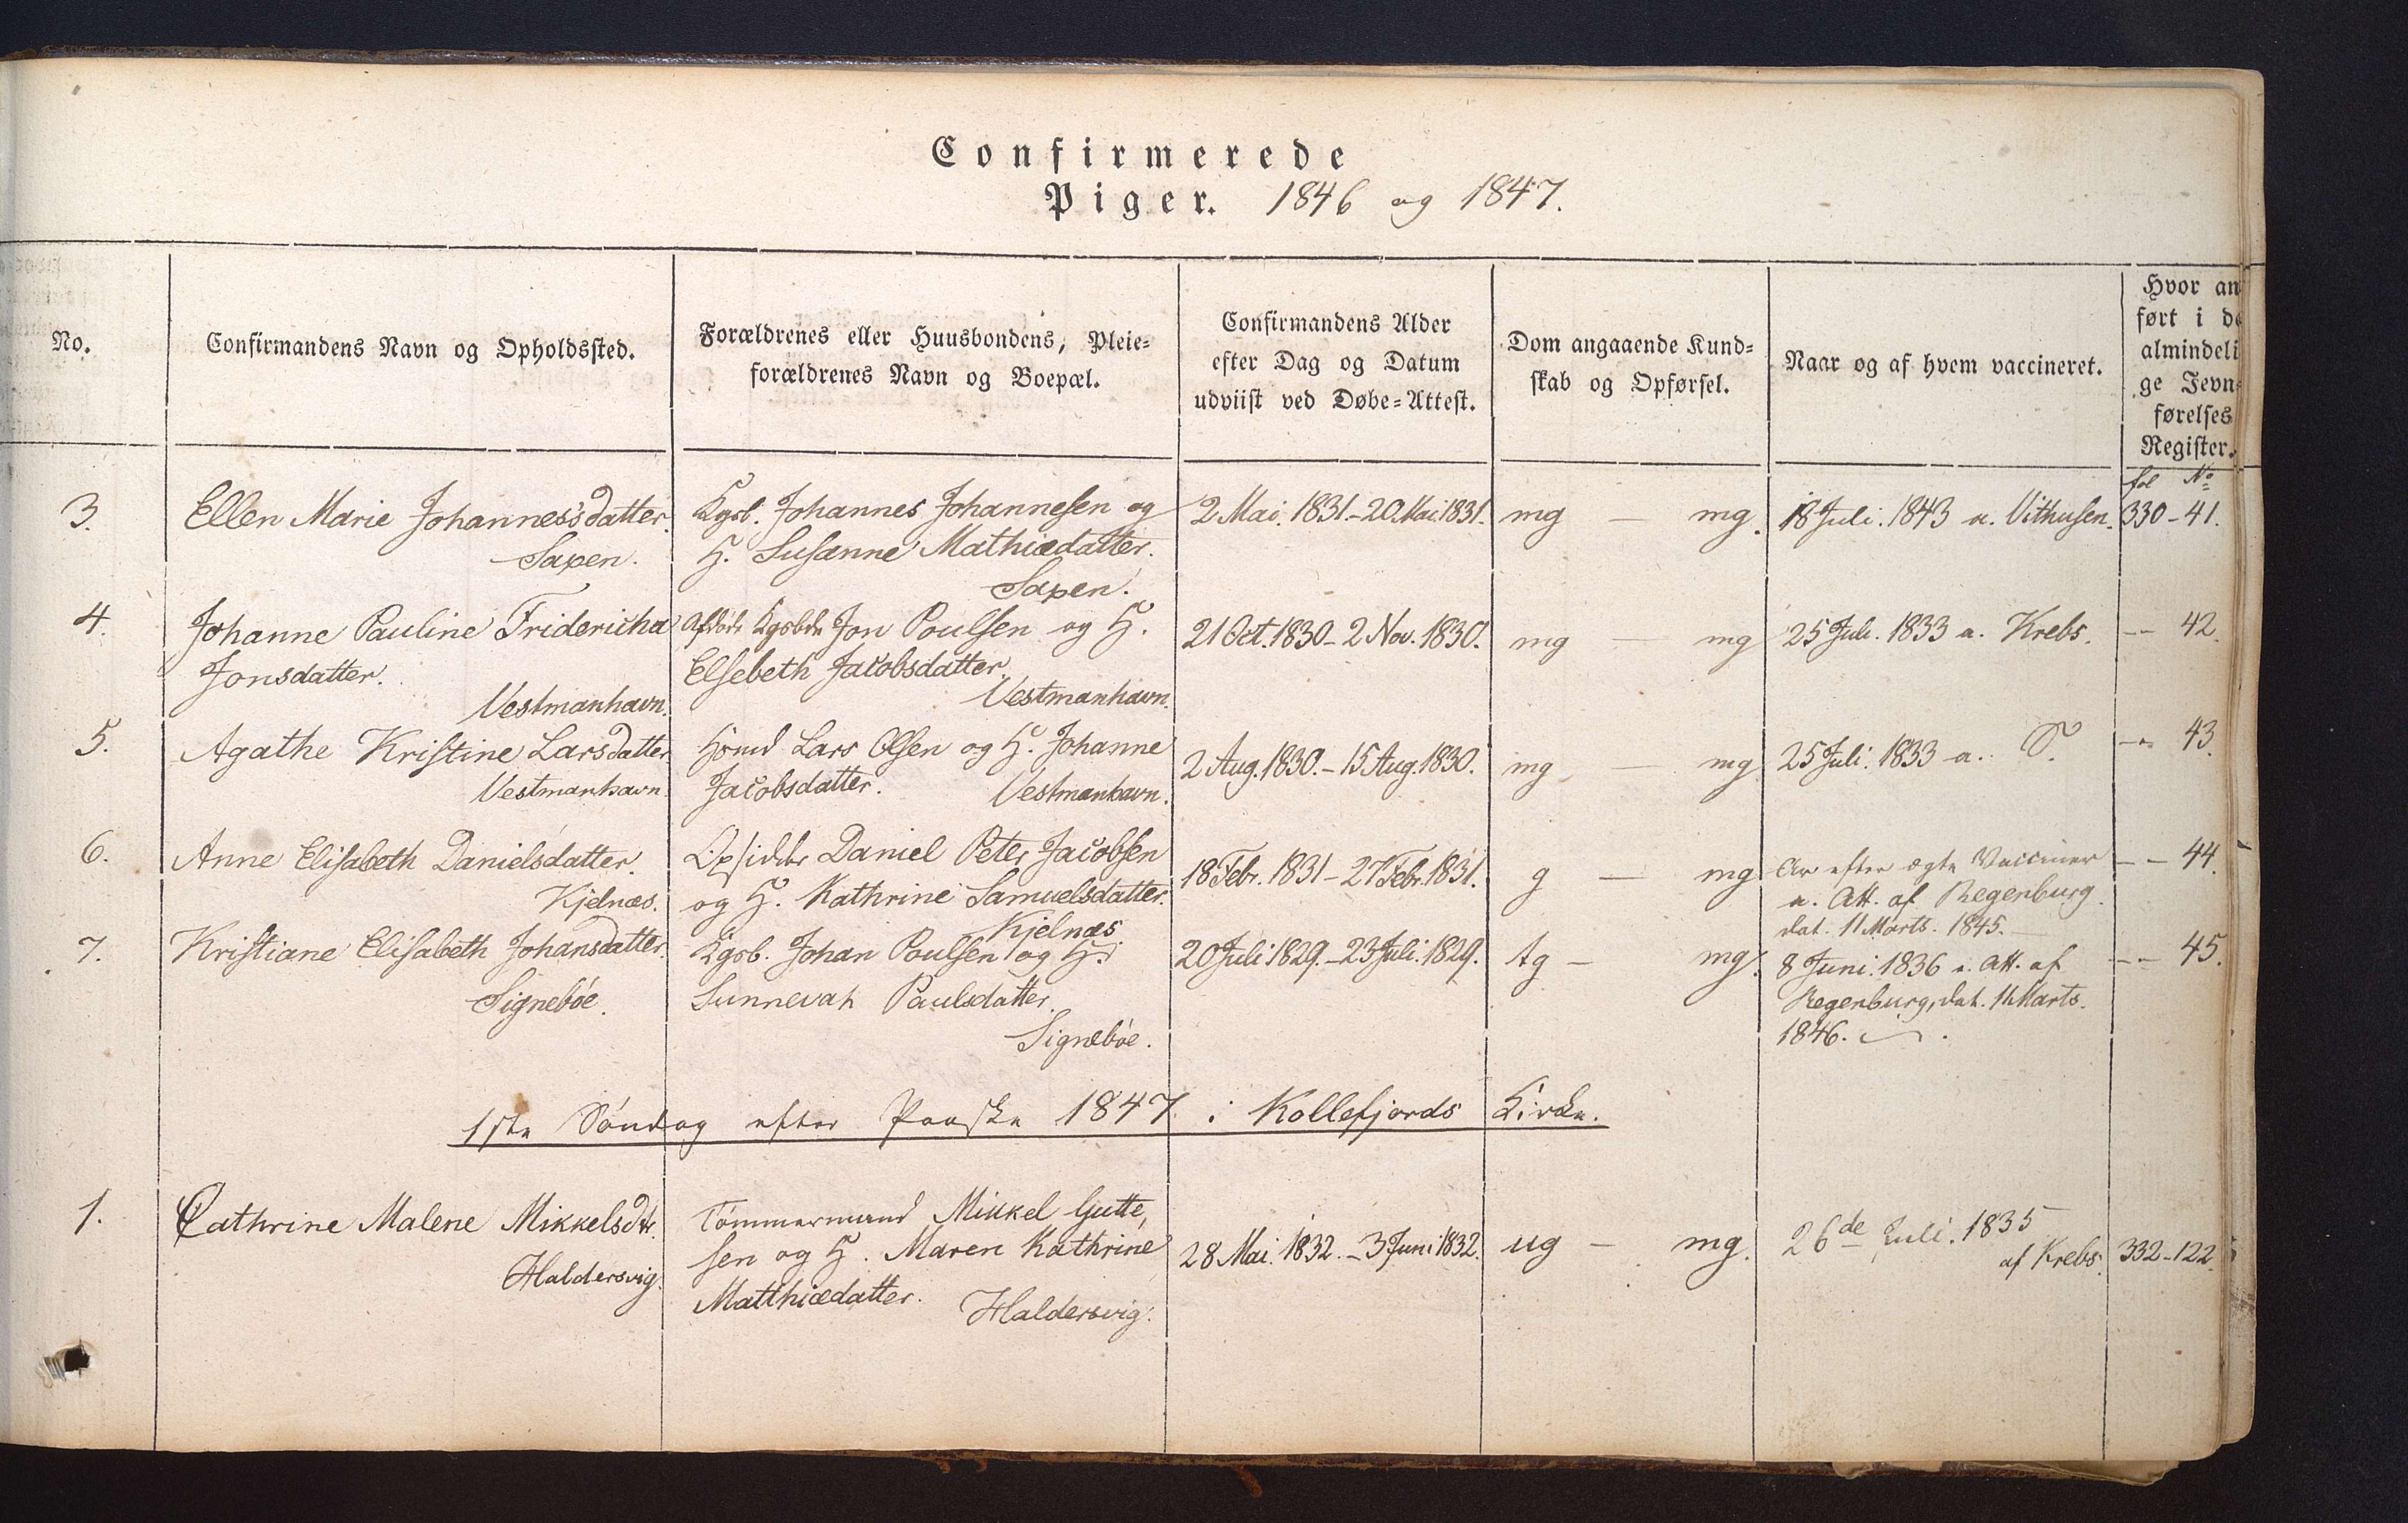 Confirmerede
Piger. 1846 og 1847.
No.
Confirmandens Navn og Opholdssted.
Forældrenes eller Huusbondens, Pleie-
forældrenes Navn og Boepæl.
Confirmandens Alder
efter Dag og Datum
udviist ved Døbe-Attest.
Dom angaaende Kund-
skab og Opførsel.
Naar og af hvem vaccineret.
Hvor an
ført i de
almindeli
ge Jevn-
førelses
Register.
fol No
3.
Ellen Marie Johannes's datter.
Saxen.
Kgsb. Johannes Johannesen og
H. Susanne Mathiædatter.
Saxen.
2 Mai. 1831 - 20 Mai 1831.
mg — mg.
18 Juli. 1843 a. Vithusen.
330 - 41.
4.
Johanne Pauline Fridericha
Jonsdatter.
Vestmanhavn.
Afdøde Kgsbdr Jon Poulsen og H.
Elsebeth Jacobsdatter.
Vestmanhavn.
21 Oct. 1830 - 2 Nov. 1830.
mg — mg
25 Juli. 1833 a. Krebs.
-- 42.
5.
Agathe Kristine Larsdatter
Vestmanhavn
Lars Olsen og H. Johanne
Jacobsdatter. Vestmanhavn.
2 Aug. 1830. - 15 Aug. 1830.
mg — mg
25 Juli. 1833 a.
-- 43.
6.
Anne Elisabeth Danielsdatter.
Kjelnæs.
Opsidder Daniel Peter Jacobsen
og H. Kathrine Samuelsdatter.
Kjelnæs
18 Febr. 1831 - 27 Febr. 1831.
g — mg
Ar efter ægte Vacciner
a. Att. af Regenburg.
dat. 11 Marts. 1845. —
-- 44.
7.
Kristiane Elisabeth Johansdatter.
Signebøe.
Kgsb. Johan Poulsen og H.
Sunnevah Paulsdatter.
Signebøe.
20 Juli 1829. - 23 Juli. 1829.
tg — mg.
8 Juni. 1836 a. Att. af
Regenburg, dat. 11 Marts.
1846. —
-- 45.
1ste Søndag efter Paaske 1847 i Kollefjords Kirke.
1.
Cathrine Malene Mikkelsdtr.
Haldersvig.
Tømmermand Mikkel Gutte,
sen og H. Maren Kathrine
Matthiædatter. Haldersvig.
28 Mai. 1832. - 3 Juni 1832.
ug — mg.
26de Juli. 1835
af Krebs.
332 - 122.